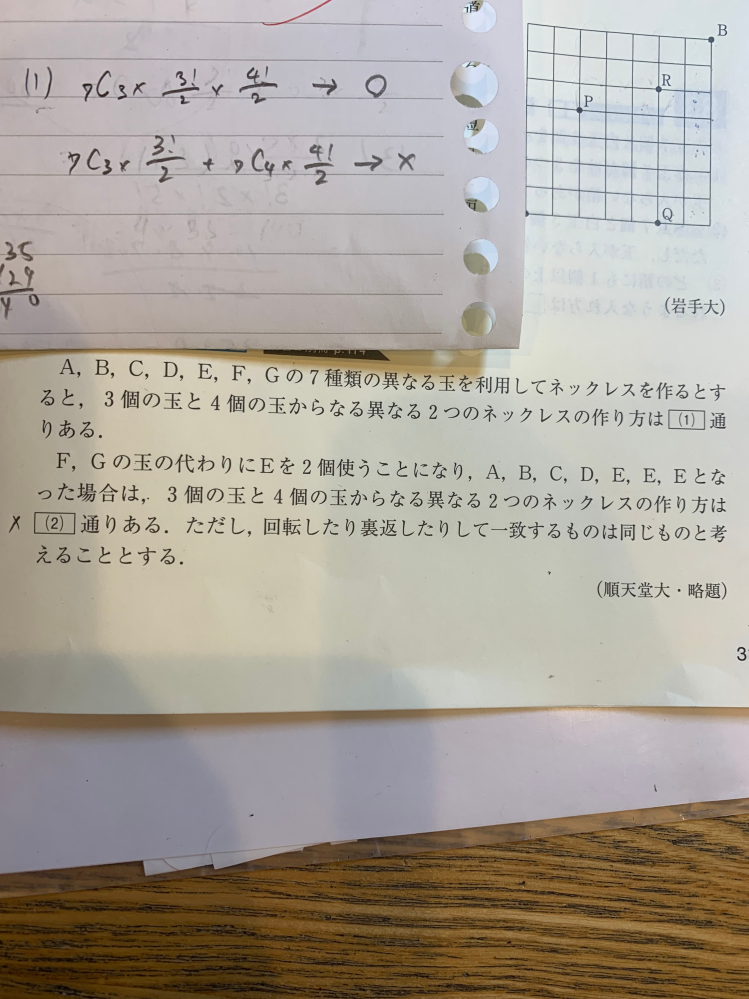 B
R
P
Q
(1) 7C3× 3!/2 × 4!/2 → ○
7C3× 3!/2 + 7C4× 4!/2 → ×
35
(岩手大)
A, B, C, D, E, F, Gの7種類の異なる玉を利用してネックレスを作るとす
ると, 3個の玉と4個の玉からなる異なる2つのネックレスの作り方は(1)通
りある.
F, Gの玉の代わりにEを2個使うことになり, A, B, C, D, E, E, Eとな
った場合は, 3個の玉と4個の玉からなる異なる2つのネックレスの作り方は
× (2)通りある. ただし, 回転したり裏返したりして一致するものは同じものと考
えることとする.
(順天堂大・略題)